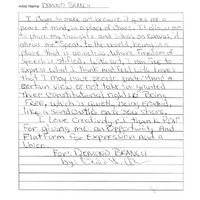 Artist Name: DEMOND BRANCH
I chose to make art because it gives me a
peace of mind, in a place of chaos. It allow me
to place my thoughts and ideas on canvas, it
allows me to "speak" to the world, being in a
place that is in which is, where Freedom of
Speech is stifled. With art, I am free to
Express what I think and feel with hopes
that I may have people understand a
certain view or not take for granted
their constitutional rights of Being
Free, which is quietly being eroded,
like a sandcastle on a sea shore.
I Love Creativity, &
For giving me an opportunity And
Platform for Expression and a
Voice.
For: DEMOND BRANCH
By: